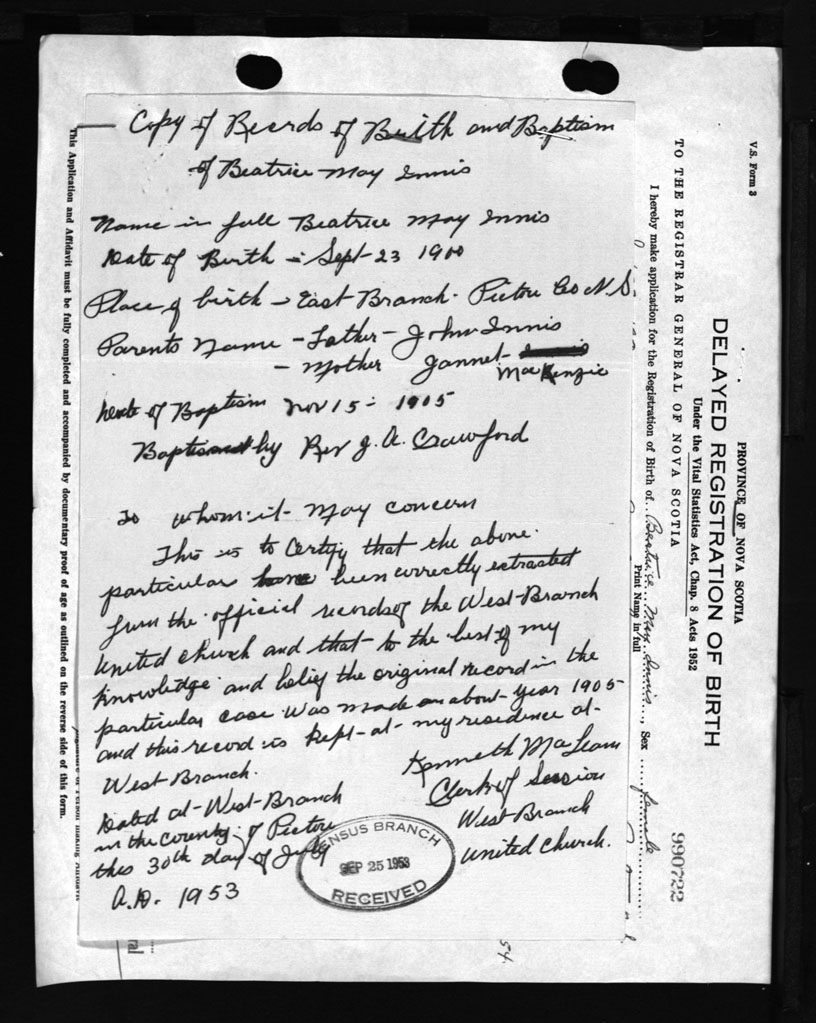 Copy of Records of Birth and Baptism
of Beatrice May Innis
Name in full Beatrice May Innis
Date of Birth - Sept-23 1900
Place of birth - East Branch. Pictou Co N.S.
Parents Name - Father - John Innis
- Mother Jannet-
MacKenzie
Date of Baptism Nov 15 - 1905
Baptised by Rev J. A. Crawford
To whom-it-May concern
This is to Certify that the above
particular have been correctly extracted
from the official records of the West-Branch
United Church and that to the best of my
knowledge and belief the original record in the
particular case was made on about-year 1905
and this record is kept-at-my residence at-
West-Branch.
Kenneth MacLean
Clerk of Session
West-Branch
United Church.
Dated at-West-Branch
in the county of Pictou
this 30th day of July
A.D. 1953
ENSUS BRANCH
SEP 25 1953
RECEIVED
54
This Application and Affidavit must be fully completed and accompanied by documentary proof of age as outlined on the reverse side of this form.
V.S. Form 3
PROVINCE OF NOVA SCOTIA
DELAYED REGISTRATION OF BIRTH
Under the Vital Statistics Act, Chap. 8 Acts 1952
990722
TO THE REGISTRAR GENERAL OF NOVA SCOTIA
I hereby make application for the Registration of Birth of...Beatrice...May...Innis......, Sex ......female......
Print Name in full
ral